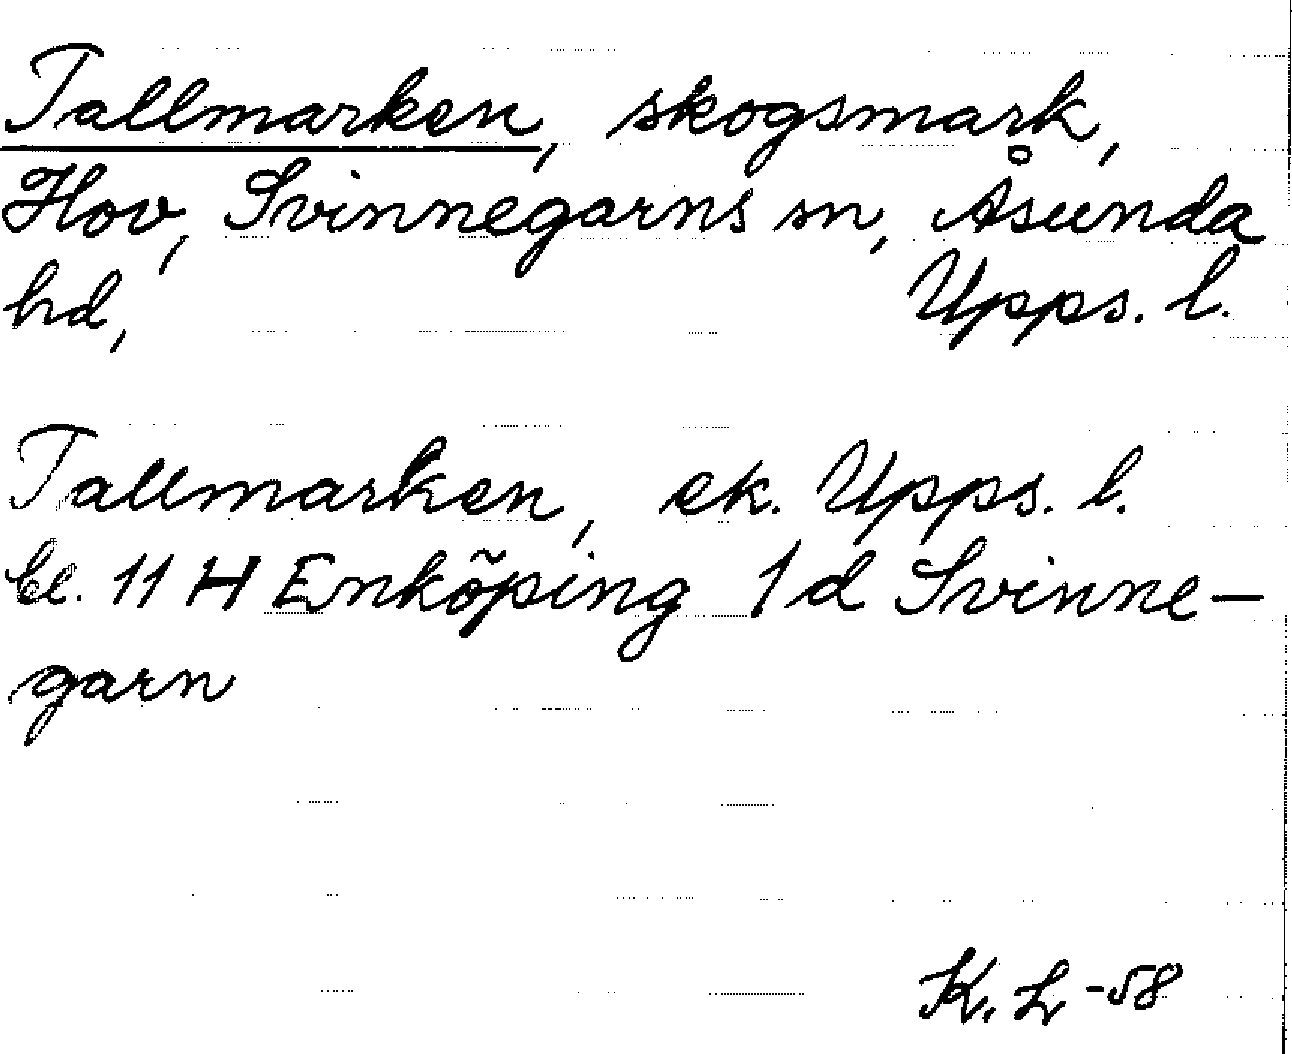 Tallmarken, skogsmark,
Hov, Svinnegarns sn, Åsunda
hd, Upps. l.
Tallmarken, ek. Upps. l.
bl. 11 H Enköping 1 d Svinne-
garn
K. L -58